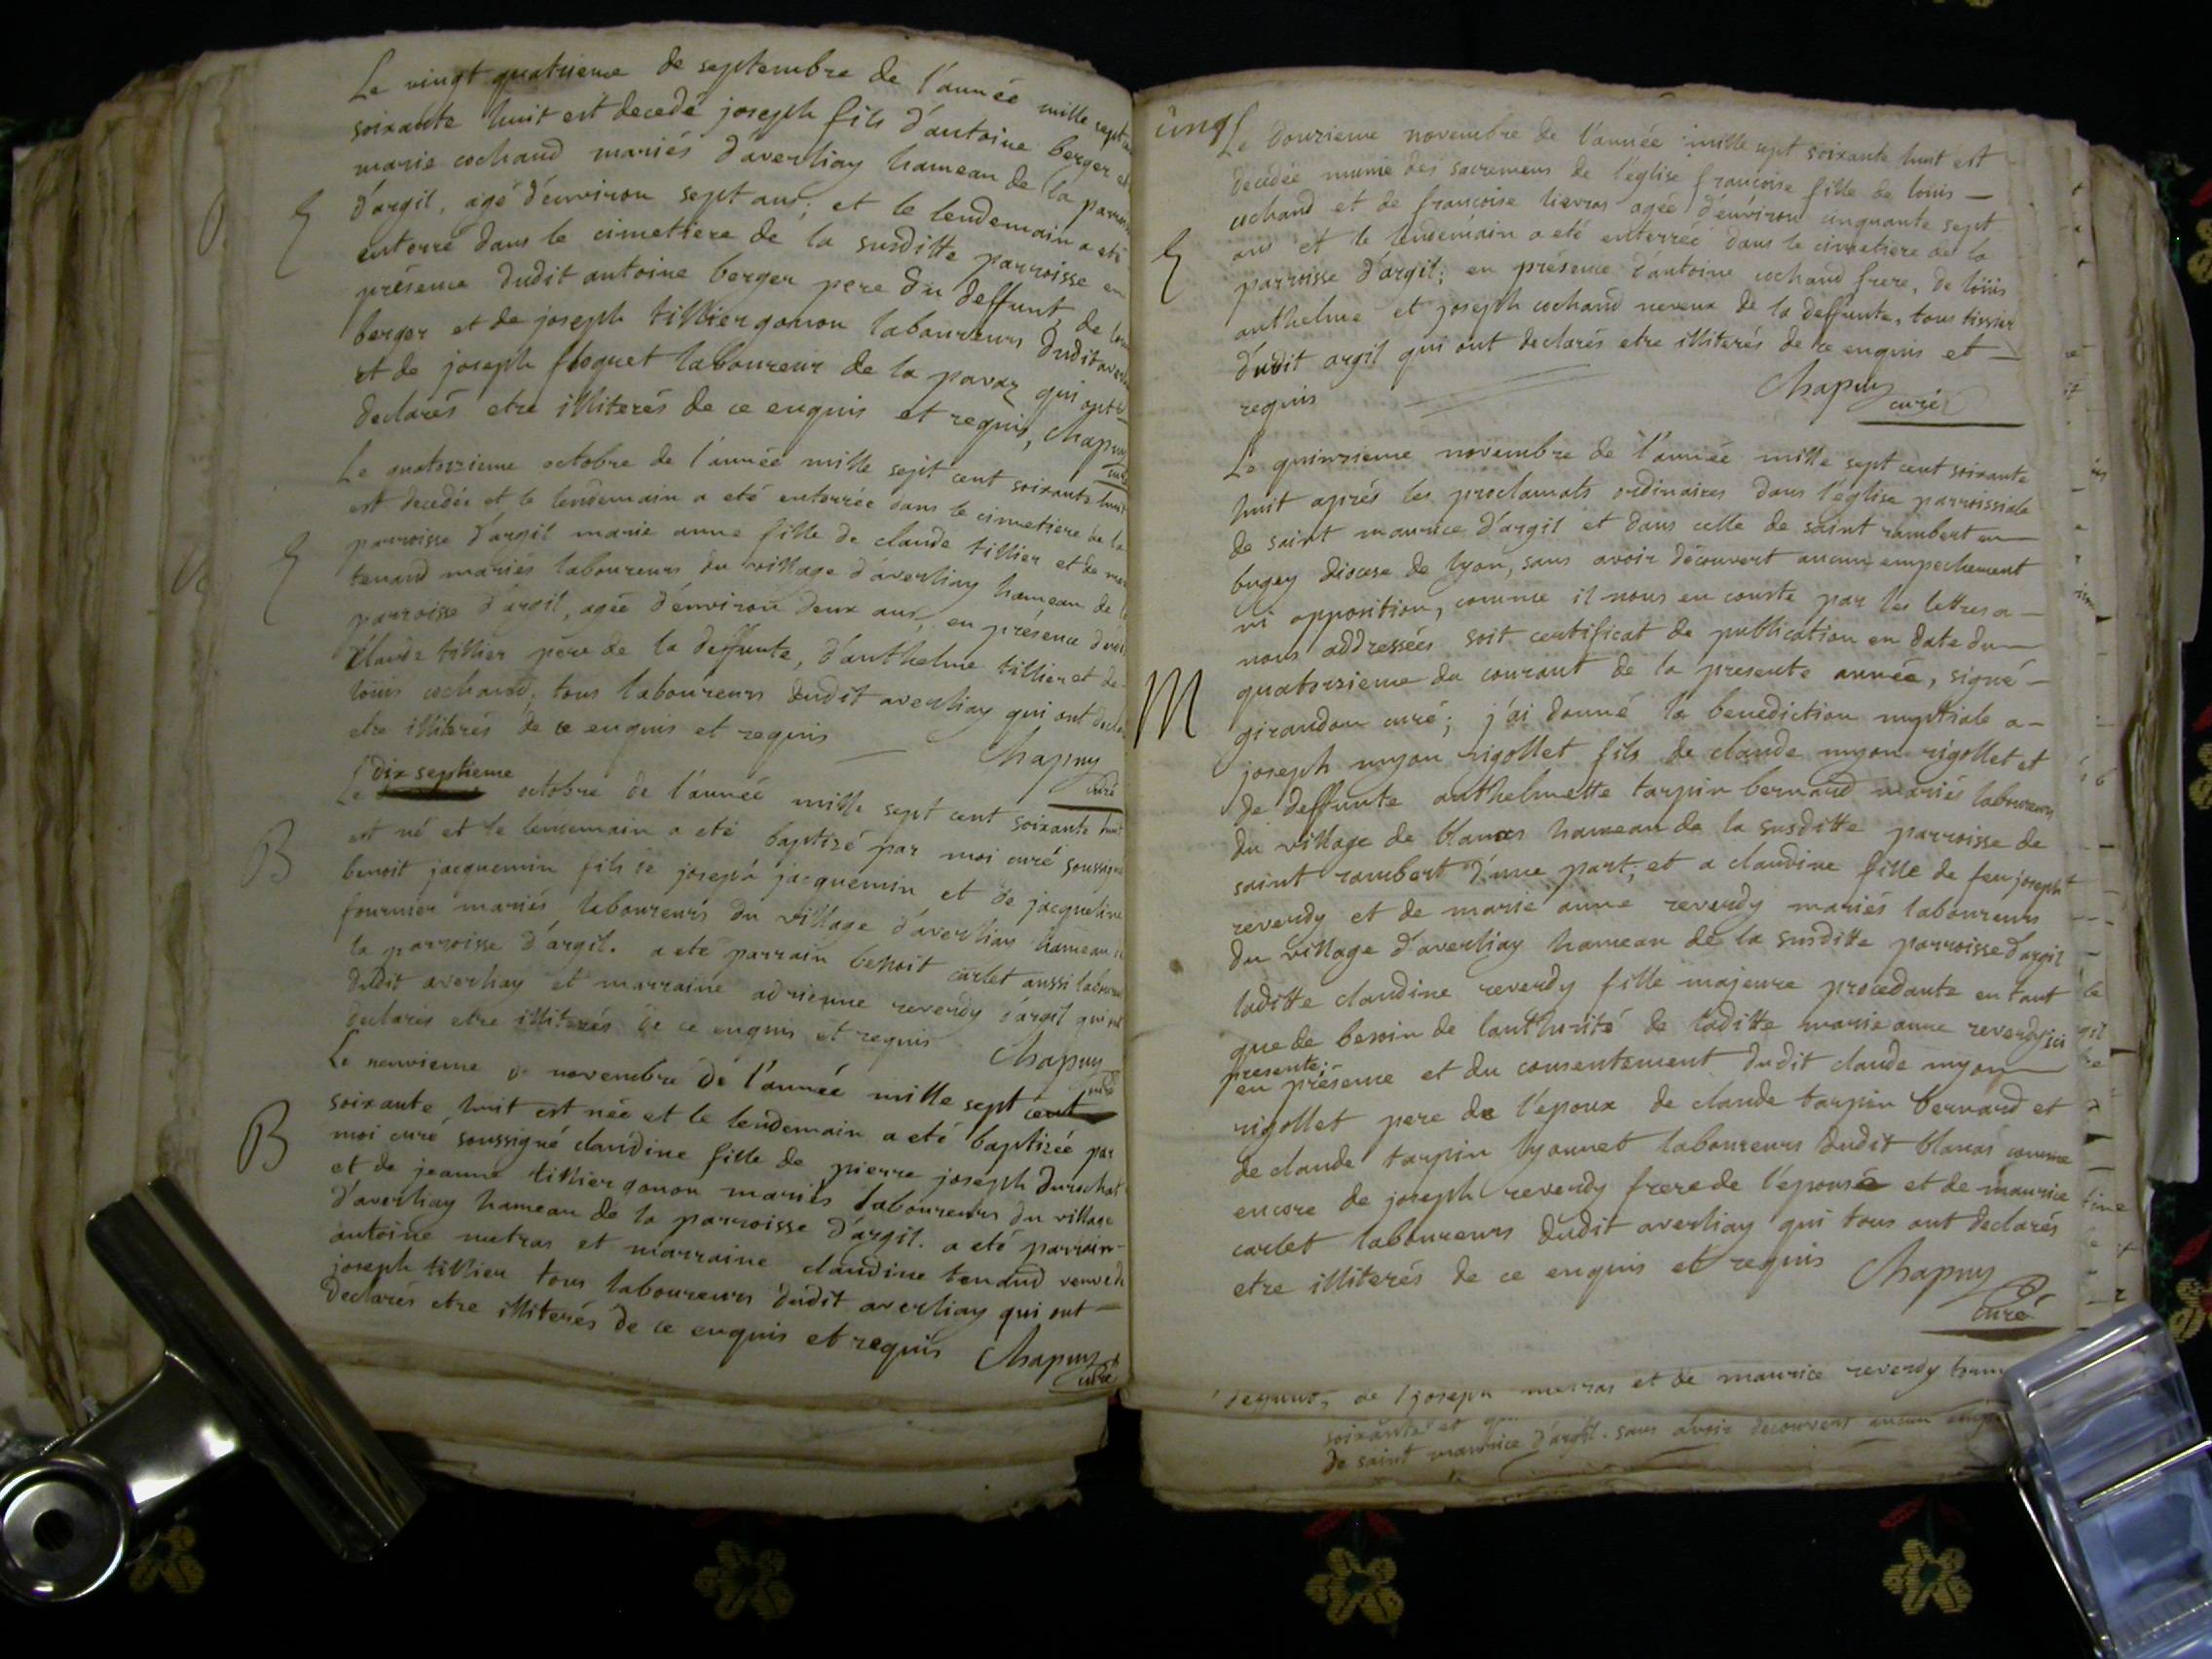 Le vingt quatrieme de septembre de l'année mille sept
soixante huit est decedé joseph fils d'antoine berger et
marie cochand mariés d'averliay hameau de la parrois
d'argil, agé d'environ sept ans; et le lendemain a eté
E
enterré dans le cimetiere de la susditte parroisse en
présence dudit antoine berger pere du deffunt, de
berger et de joseph tillier gonon laboureurs dudit aver
et de joseph floquet laboureur de la qui ont
declarés etre illiterés de ce enquis et requis, Chapuy
curé
Le quatorzieme octobre de l'année mille sept cent soixante huit
est decedée et le lendemain a eté enterrée dans le cimetiere de la
E
parroisse d'argil marie anne fille de claude tillier et de
tenand mariés laboureurs du village d'averliay hameau de
parroisse d'argil, agée d'environ deux ans, en présence dudi
claude tillier père de la deffunte, d'anthelme tillier et de
loüis cochand, tous laboureurs dudit averliay qui ont decla
etre illiterés de ce enquis et requis — Chapuy
curé
dix septieme
Le octobre de l'année mille sept cent soixante huit
B
est né et le lendemain a eté baptisé par moi curé soussigné
benoit jacquemin fils de joseph jacquemin et de jacqueline
fournier mariés laboureurs du village d'averliay hameau
la parroisse d'argil. a eté parrain benoit carlet aussi labour
dudit averliay et marraine adrienne reverdy d'argil qui ont
declarés etre illiterés de ce enquis et requis Chapuy
curé
Le neuvieme de novembre de l'année mille sept cent
B
soixante huit est née et le lendemain a eté baptisée par
moi curé soussigné claudine fille de pierre joseph durochat
et de jeanne tillier gonon mariés laboureurs du village
d'averliay hameau de la parroisse d'argil. a eté parrain
antoine metras et marraine claudine tenand veuve de
joseph tillier tous laboureurs dudit averliay qui ont —
declarés etre illiterés de ce enquis et requis Chapuy
curé
cinq
Le douzieme novembre de l'année mille sept soixante huit est
decedée munie des sacremens de l'église françoise fille de loüis —
cochand et de françoise lievras agée d'environ cinquante sept
E
ans et le lendemain a eté enterrée dans le cimetiere de la
parroisse d'argil; en présence d'antoine cochand frere, de loüis
anthelme et joseph cochand neveux de la deffunte, tous tissier
dudit argil qui ont declarés etre illiterés de ce enquis et —
requis Chapuy
curé
Le quinzieme novembre de l'année mille sept cent soixante
huit aprés les proclamats ordinaires dans l'église parroissiale
de saint maurice d'argil et dans celle de saint rambert en —
bugey diocese de lyon, sans avoir découvert aucun empechement
ni opposition, comme il nous en conste par les lettres a —
nous addressées soit certificat de publication en date du —
M
quatorzieme du courant de la presente année, signé —
girandon curé; j'ai donné la benediction nuptiale a —
joseph myon rigollet fils de claude myon rigollet et
de deffunte anthelmette tarpin bernand mariés laboureurs
du village de blanas hameau de la susditte parroisse de
saint rambert d'une part, et a claudine fille de feu joseph
reverdy et de marie anne reverdy mariés laboureurs
du village d'averliay hameau de la susditte parroisse d'argil
laditte claudine reverdy fille majeure procedante en tant
que de besoin de l'authorité de laditte marie anne reverdy ici
presente;
en présence et du consentement dudit claude myon —
rigollet pere de l'epoux de claude tarpin bernard et
de claude tarpin lyonnet laboureurs dudit blanas comme
encore de joseph reverdy frere de l'epouse et de maurice
carlet laboureurs dudit averliay qui tous ont declarés
etre illiterés de ce enquis et requis Chapuy
curé
de joseph metras et de maurice reverdy
soixante et
de saint maurice d'argil. sans avoir decouvert aucun